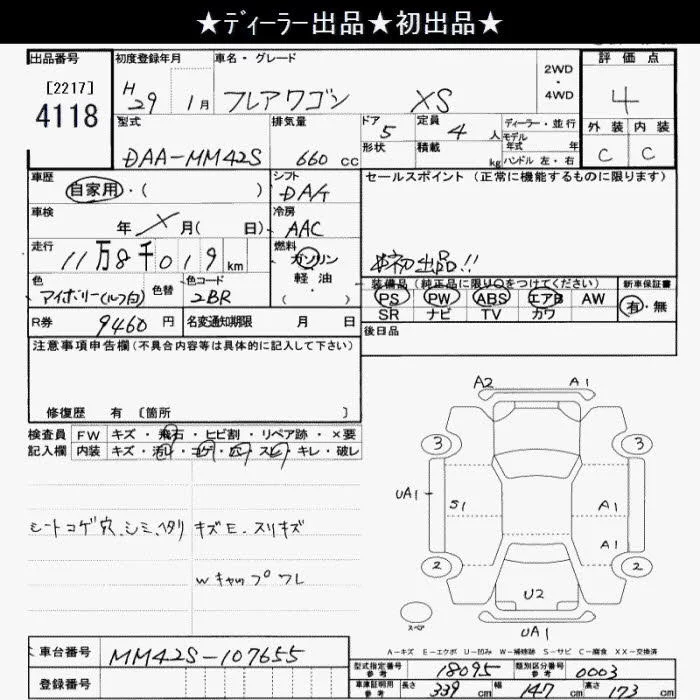 ★ディーラー出品★初出品★
出品番号
[2217]
4118
初度登録年月
H 29 1月
車名・グレード
フレアワゴン XS
2WD
・
4WD
評価点
4
外装 内装
C C
型式
DAA-MM42S
排気量
660 cc
ドア 5
形状
定員 4 人
積載 kg
ディーラー・並行
モデル年式 年
ハンドル 左・右
車歴
自家用・( )
シフト
DAA
セールスポイント (正常に機能するものに限ります)
車検
年 月( 日)
冷房
AAC
走行
11万8千019km
燃料
ガソリン
軽油
( )
初出品!!
色
アイボリー(ルーフ白)
色替
色コード
2BR
装備品 (純正品に限り○をつけてください)
PS PW ABS エアB AW
SR ナビ TV カワ
新車保証書
有・無
R券 9460円
名変通知期限 月 日
後日品
注意事項申告欄(不具合内容等は具体的に記入して下さい)
修復歴 有 〔箇所 〕
検査員 FW キズ・飛石・ヒビ割・リペア跡・×要
記入欄 内装 キズ・汚レ・コゲ・穴・スレ・キレ・破レ
シートコゲ穴、シミ、ヘタリ
キズE.スリキズ
Wキャップワレ
A2 A1
3 3
UA1 S1 A1
A1
2 2
U2
スペア
UA1
A-キズ E-エクボ U-凹み W-補修跡 S-サビ C-腐食 XX-交換済
車台番号 MM42S-107655
登録番号
型式指定番号 参考 18095 類別区分番号 参考 0003
車庫証明用 参考 長さ 339cm 幅 147cm 高さ 173cm